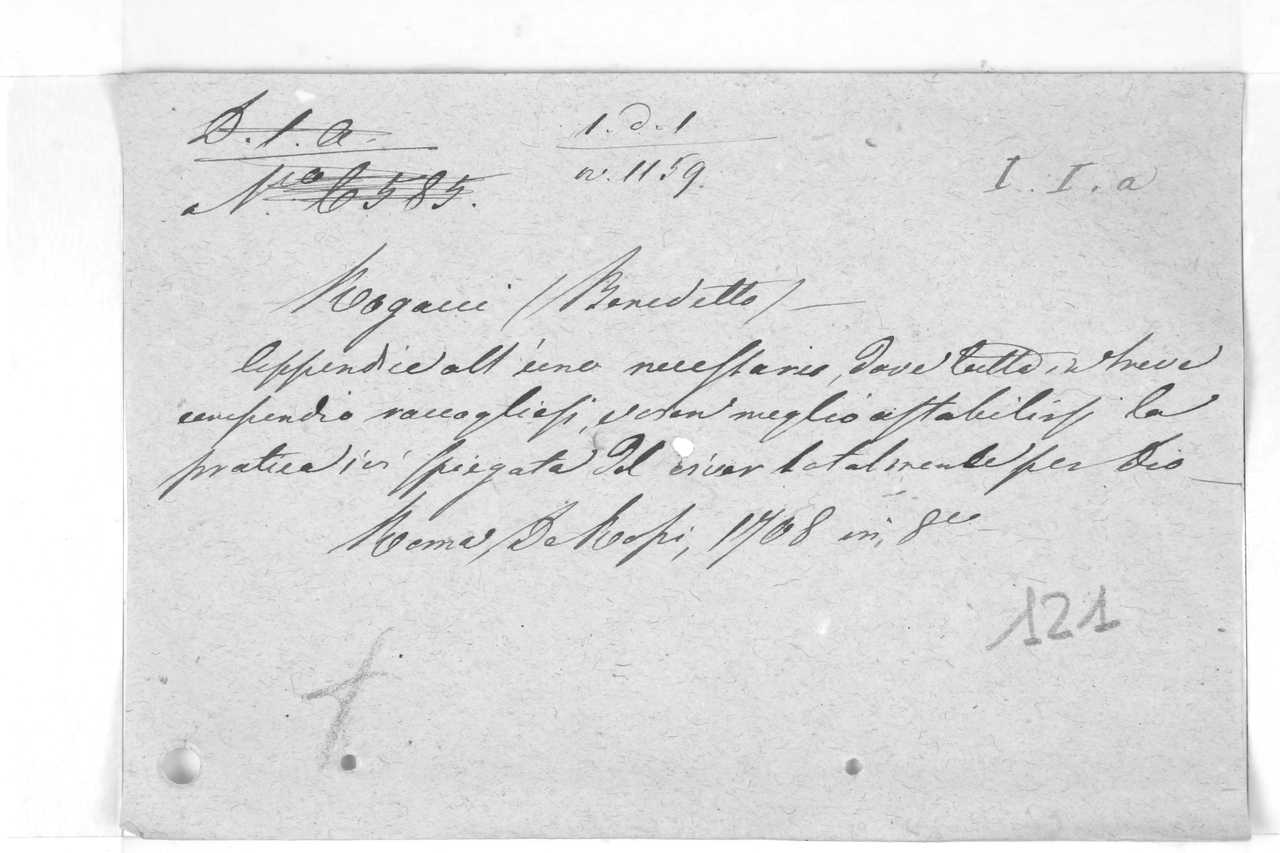 D. 1. a.
1. d. 1
N.ro 6585.
n. 1159.
I. I. a
Rogacci (Benedetto) —
Appendice all'uno necessario, dove tutto in breve
compendio raccogliesi, e vien meglio a stabilirsi la
pratica ivi spiegata del viver totalmente per Dio —
Roma, De Rossi, 1708 in, 8vo
121